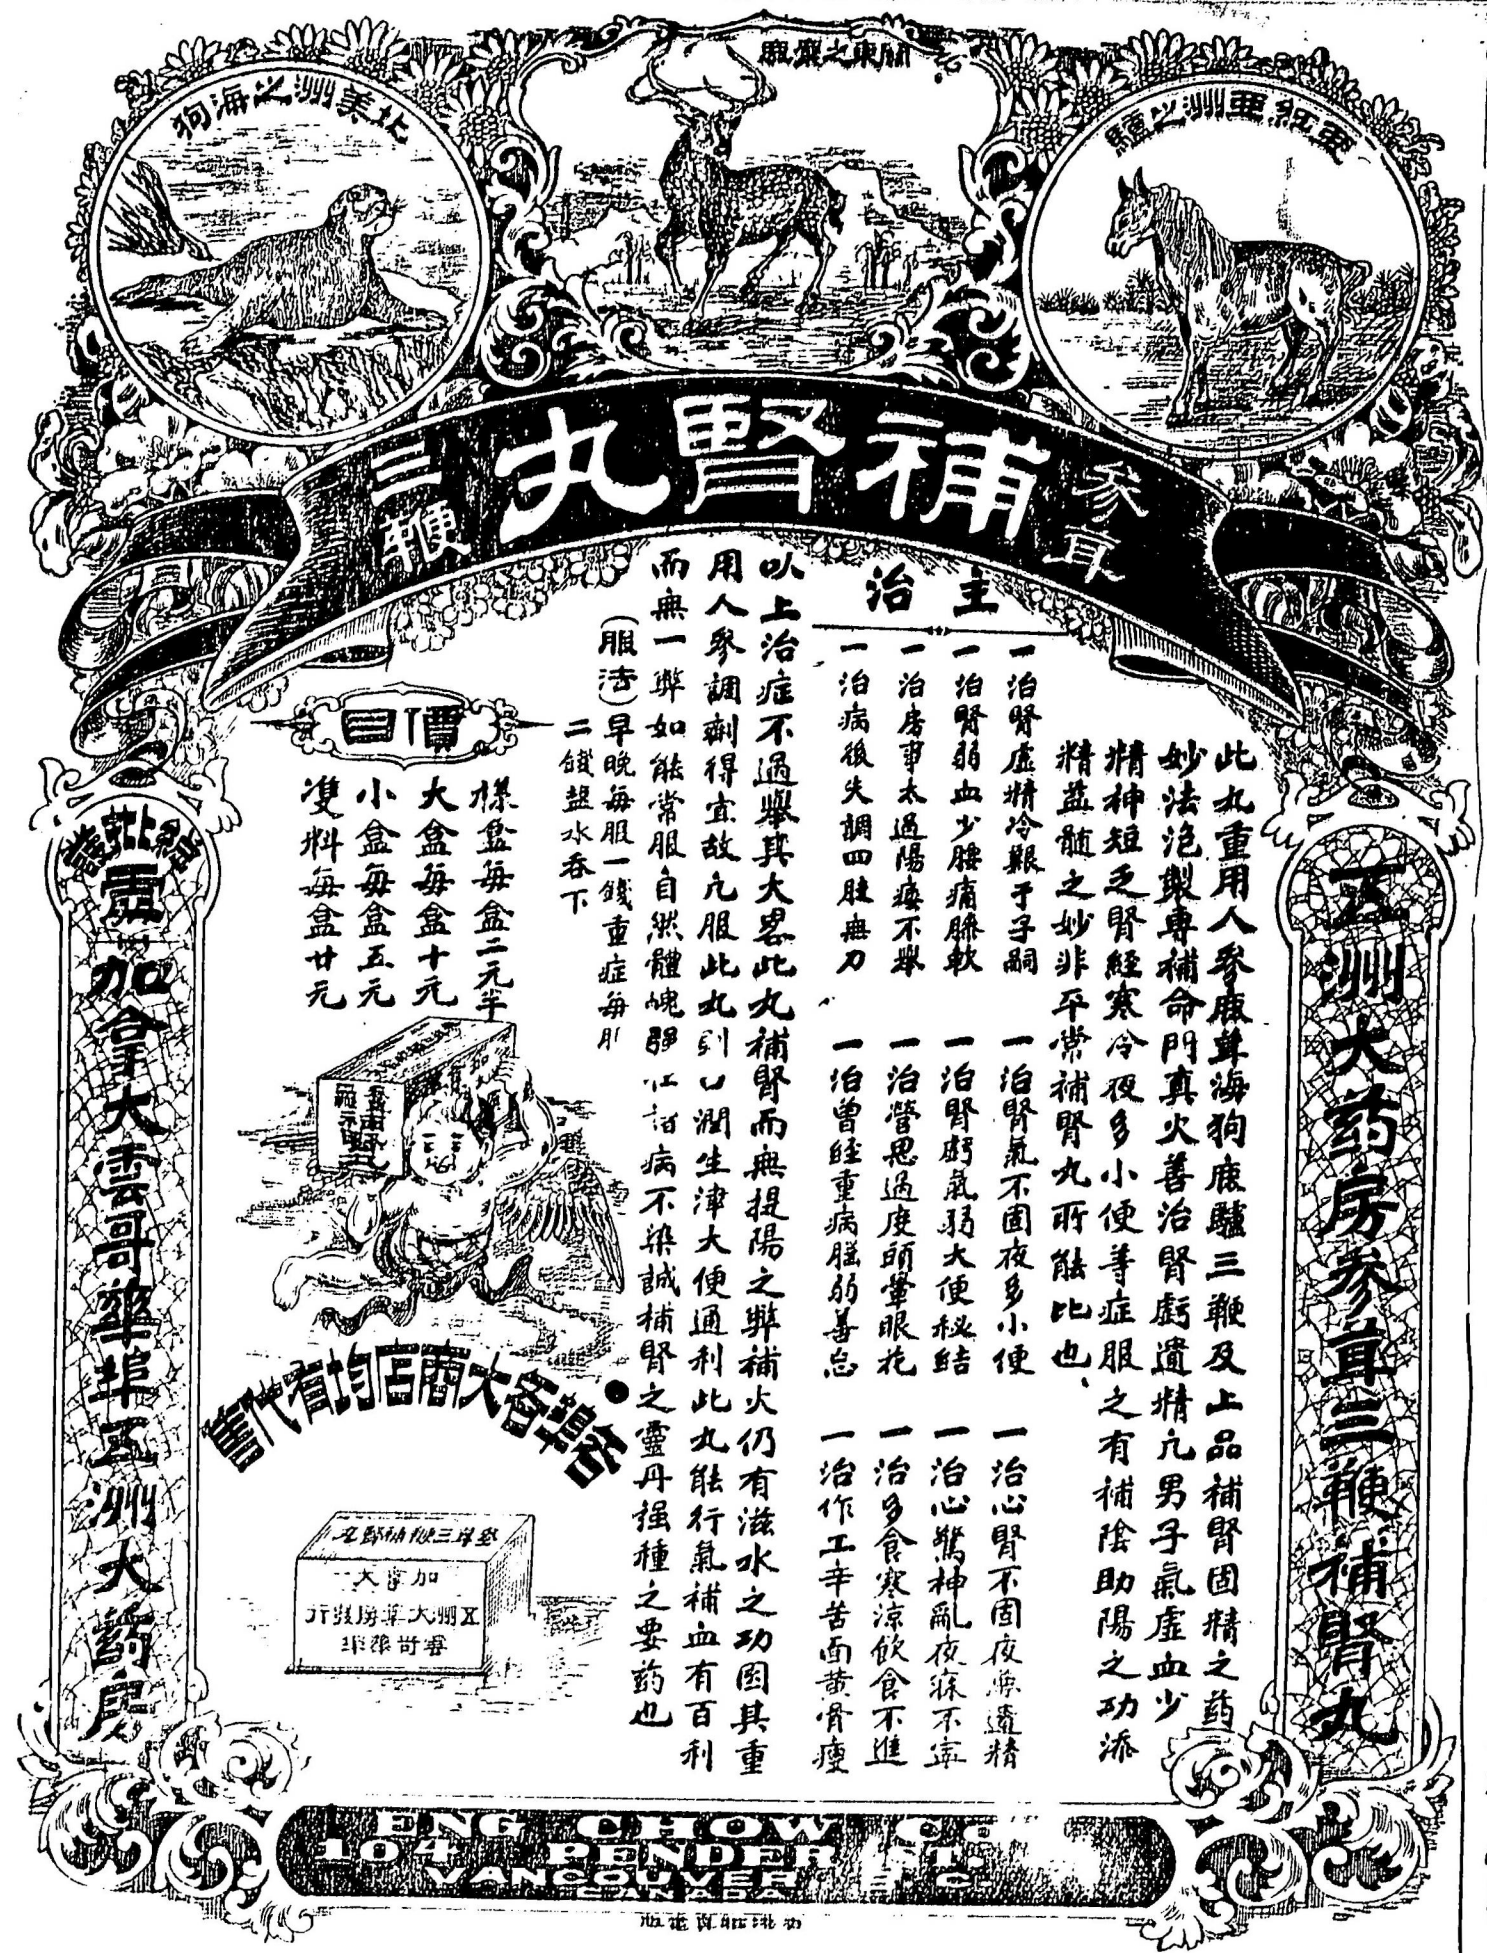 北美洲之海狗
關東之靈鹿
東紐亜洲之驢
參茸
補腎丸
三鞭
五洲大药房參茸三鞭補腎丸
此丸重用人參鹿茸海狗鹿驢三鞭及上品補腎固精之药
妙法泡製專補命門真火善治腎虧遺精凢男子氣虛血少
精神短乏腎經寒冷夜多小便等症服之有補陰助陽之功添
精益髓之妙非平常補腎丸所能比也
主治
一治腎虛精冷艱于子嗣
一治腎氣不固夜多小便
一治心腎不固夜夢遺精
一治腎弱血少腰痛膝軟
一治腎虧氣弱大便秘結
一治心驚神亂夜寐不寧
一治房事太過陽痿不舉
一治營思過度頭暈眼花
一治多食寒涼飲食不進
一治病後失調四肢無力
一治曾經重病腦弱善忘
一治作工辛苦面黄骨瘦
以上治症不過舉其大畧此丸補腎而無提陽之弊補火仍有滋水之功因其重
用人參調劑得宜故凢服此丸到口潤生津大便通利此丸能行氣補血有百利
而無一弊如能常服自然體魄強壮諸病不染誠補腎之靈丹强種之要药也
(服法)早晚每服一錢重症每服
二錢盐水吞下
價目
樣盒每盒二元半
大盒每盒十元
小盒每盒五元
雙料每盒廿元
各埠各大商店均有代售
參茸三鞭補腎丸
加拿大
五洲大药房發行
雲哥華埠
總批發處
加拿大雲哥華埠五洲大药房
ENG CHOW CO
104 PENDER ST.
VANCOUVER B.C.
CANADA